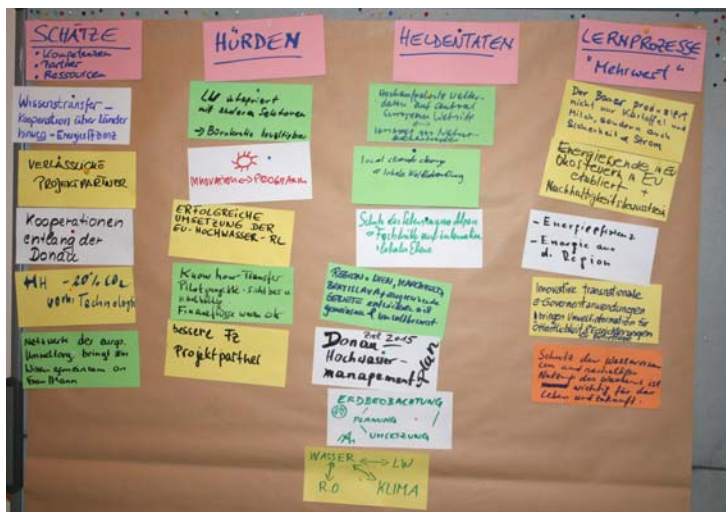 SCHÄTZE
• Kompetenzen
• Partner
• Ressourcen
Wissenstransfer –
Kooperation über Länder
hinaus - Energieeffizienz
VERLÄSSLICHE
PROJEKTPARTNER
Kooperationen
entlang der
Donau
HH - 20% CO2
Technologie
Netzwerk der europ.
bringt
Wissen gemeinsam an
Frau/Mann
HÜRDEN
LW integriert
mit anderen Sektoren
→ Bürokratie bewältigbar
INNOVATION → PROGRAMM
ERFOLGREICHE
UMSETZUNG DER
EU-HOCHWASSER-RL
Know how-Transfer
Pilotprojekte - sichtbar u
nachhaltig
Finanzflüsse waren ok
bessere FZ
Projektpartner
HELDENTATEN
Hochaufgelöste Wetter-
daten auf Central
European Website
local climate change
Schutz des Lebensraumes Alpen
lokaler Ebene
REGION WIEN, MARCHFELD,
BRATISLAVA + angrenzende
GEBIETE entwickeln sich
gemeinsam + umweltbewusst
Ziel 2015
Donau
Hochwasser-
management
plan
ERDBEOBACHTUNG
PLANUNG
UMSETZUNG
WASSER ↔ LW
R.O. KLIMA
LERNPROZESSE
"Mehrwert"
Der Bauer produziert
nicht nur Kartoffel und
Milch, sondern auch
Sicherheit & Strom
Energiewende in EU
Ökosteuern in EU
etabliert +
Nachhaltigkeitsbewusstsein
- Energieeffizienz
- Energie aus
d. Region
Innovative transnationale
eGovernmentanwendungen
bringen Umweltinformation für
Öffentlichkeit & Regierungen
Schutz der Wasserressour-
cen und nachhaltige
Nutzung des Wassers ist
wichtig für das
Leben und Zukunft.